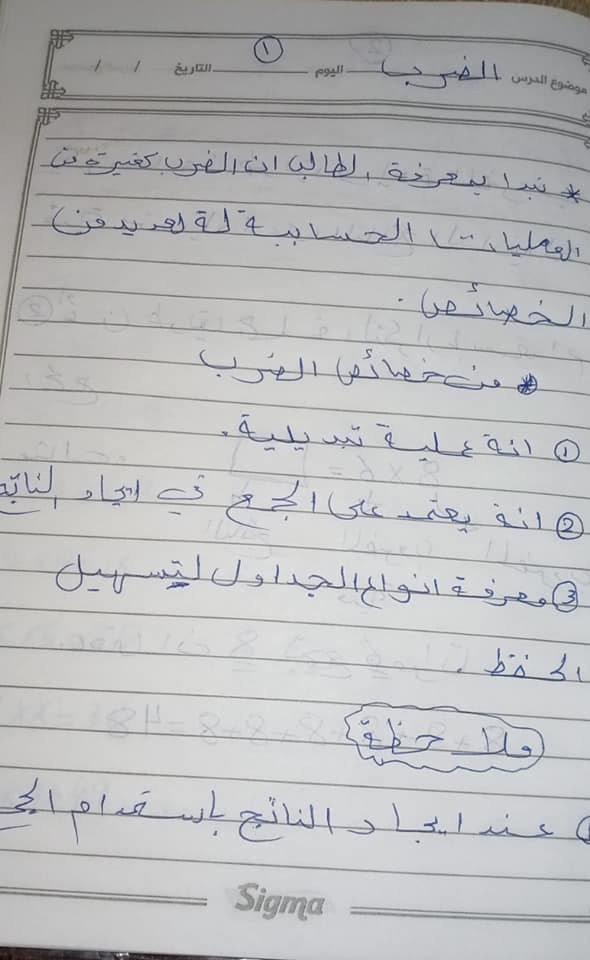 ①
موضوع الدرس الضرب اليوم التاريخ / /
* نبدا بمعرفة الطالب ان الضرب كغيرة من
العمليات الحسابية لة العديد من
الخصائص.
* من خصائص الضرب
① انة عملية تبديلية.
② انة يعتمد على الجمع في ايجاد الناتج
③ معرفة انواع الجداول لتسهيل
الحفظ.
ملاحظة
عند ايجاد الناتج بإستخدام
Sigma